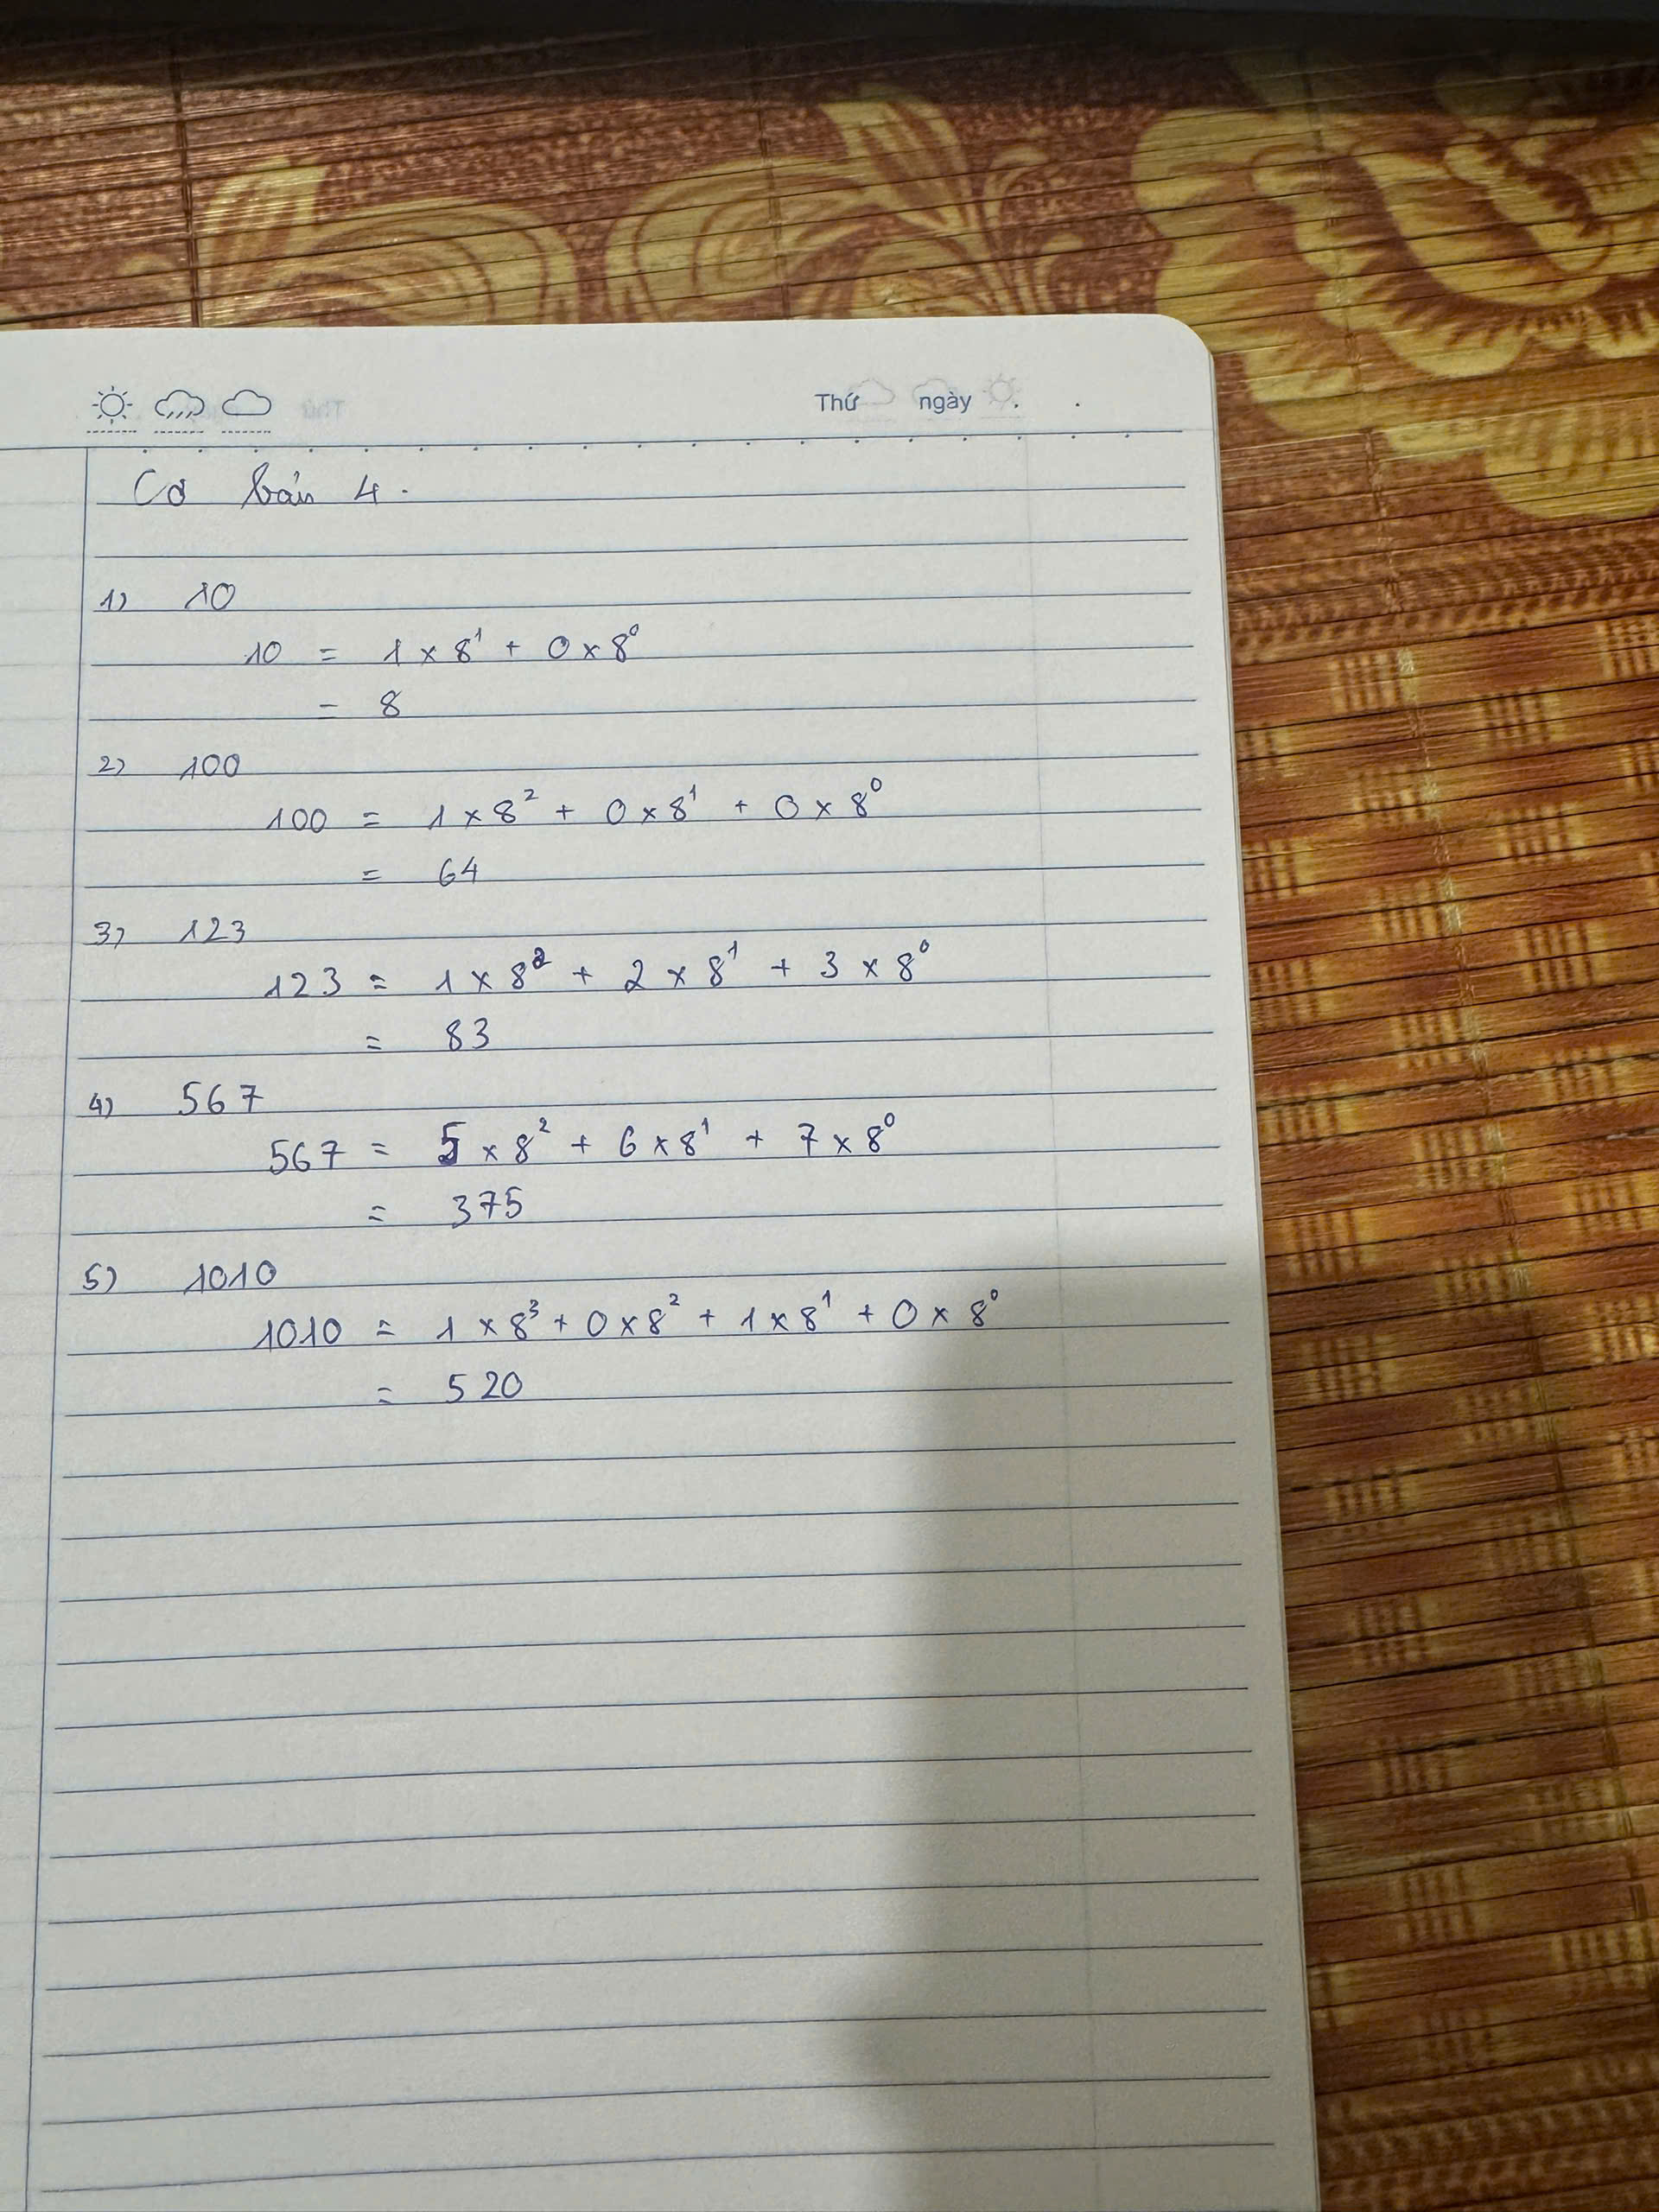 Thứ ngày
Cơ bản 4.
1) 10
10 = 1 × 8¹ + 0 × 8⁰
= 8
2) 100
100 = 1 × 8² + 0 × 8¹ + 0 × 8⁰
= 64
3) 123
123 = 1 × 8² + 2 × 8¹ + 3 × 8⁰
= 83
4) 567
567 = 5 × 8² + 6 × 8¹ + 7 × 8⁰
= 375
5) 1010
1010 = 1 × 8³ + 0 × 8² + 1 × 8¹ + 0 × 8⁰
= 520